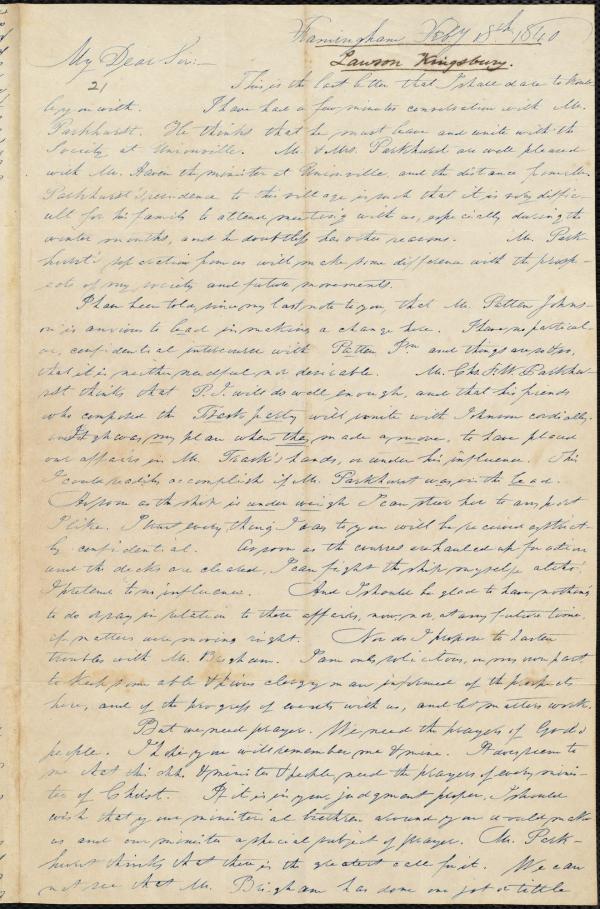 Framingham Feby 18th 1840
Lawson Kingsbury.
My Dear Sir:—
21
This is the last letter that I shall dare to trou-
ble you with. I have had a few minutes conversation with Mr.
Parkhurst. He thinks that he must leave and unite with the
Society at Unionville. Mr & Mrs. Parkhurst are well pleased
with Mr. Haven the minister at Unionville, and the distance from Mr.
Parkhurst's residence to this village is such that it is very diffic-
ult for his family to attend meeting with us, especially during the
winter months, and he doubtless has other reasons. Mr. Park-
hurst's separation from us will make some difference with the prosp-
ects of my society and future movements.
I have been told, since my last note to you, that Mr. Patten Johns-
on is anxious to lead in making a change here. I have no particul-
ar, confidential intercourse with Patten and things are so
that it is neither needful nor desirable. Mr. Chs F. W. Parkhu-
rst thinks that P. J. will do well enough, and that his friends
who composed the Trask party will unite with Johnson cordially.
It was my plan when they made a move, to have placed
our affairs in Mr. Trask's hands, or under his influence. This
I could readily accomplish if Mr. Parkhurst was in the lead.
As soon as the ship is under weigh I can steer her to any port
I like. I trust every thing I say to you will be received as strict-
ly confidential. As soon as the courses are hauled up for action
and the decks are cleared, I can fight the ship myself altho'
I pretend to no influence. And I should be glad to have nothing
to do or say in relation to these affairs, now, nor, at any future time,
if matters were moving right. Nor do I propose to hasten
troubles with Mr. Brigham. I am only solicitous, on my own part,
to keep some able & pious clergyman informed of the prospects
here, and of the progress of events with us, and let matters work.
But we need prayer. We need the prayers of God's
people. I hope you will remember me & mine. It does seem to
me that this chh. & minister & people, need the prayers of every minis-
ter of Christ. If it is in your judgment proper, I should
wish that your ministerial brethren around you would make
us and our minister a special subject of prayer. Mr. Park-
hurst thinks that there is the greatest call for it. We can
not see that Mr. Brigham has done one jot or tittle